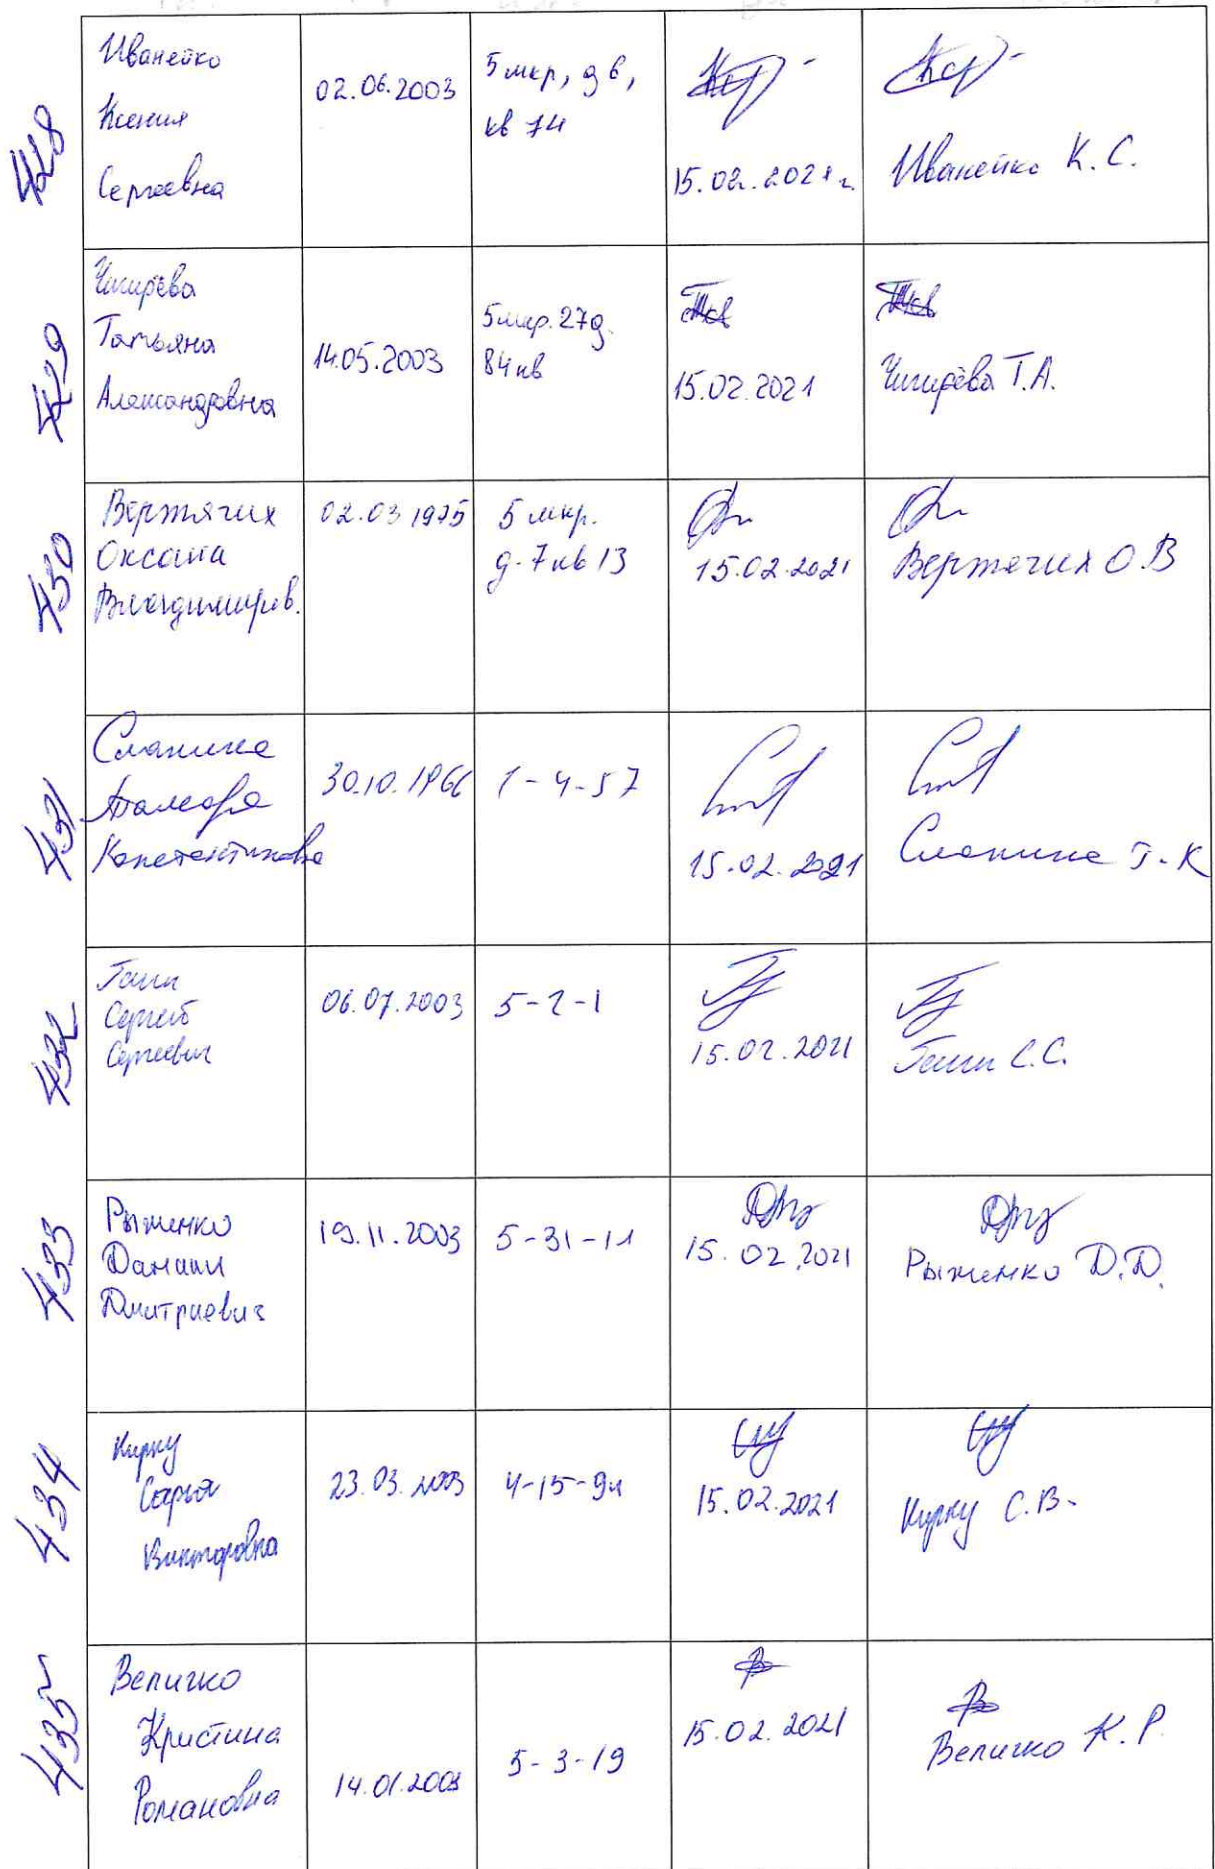 428
Иванейко
Ксения
Сергеевна
02.06.2003
5 мкр, д 6,
кв 74
15.02.2021 г.
Иванейко К. С.
429
Чигирёва
Татьяна
Александровна
14.05.2003
5 мкр. 27д.
84 кв
15.02.2021
Чигирёва Т.А.
430
Вертячих
Оксана
Владимиров.
02.03 1975
5 мкр.
д. 7 кв 13
15.02.2021
Вертячих О.В
431
Константиновна
30.10.1966
1-4-57
15.02.2021
Т.К
432
Сергей
Сергеевич
06.07.2003
5-2-1
15.02.2021
С.С.
433
Рыженко
Даниил
Дмитриевич
19.11.2003
5-31-11
15.02.2021
Рыженко Д.Д.
434
Кирку
Софья
Викторовна
23.03.2003
4-15-91
15.02.2021
Кирку С.В.
435
Величко
Кристина
Романовна
14.01.2003
5-3-19
15.02.2021
Величко К. Р.